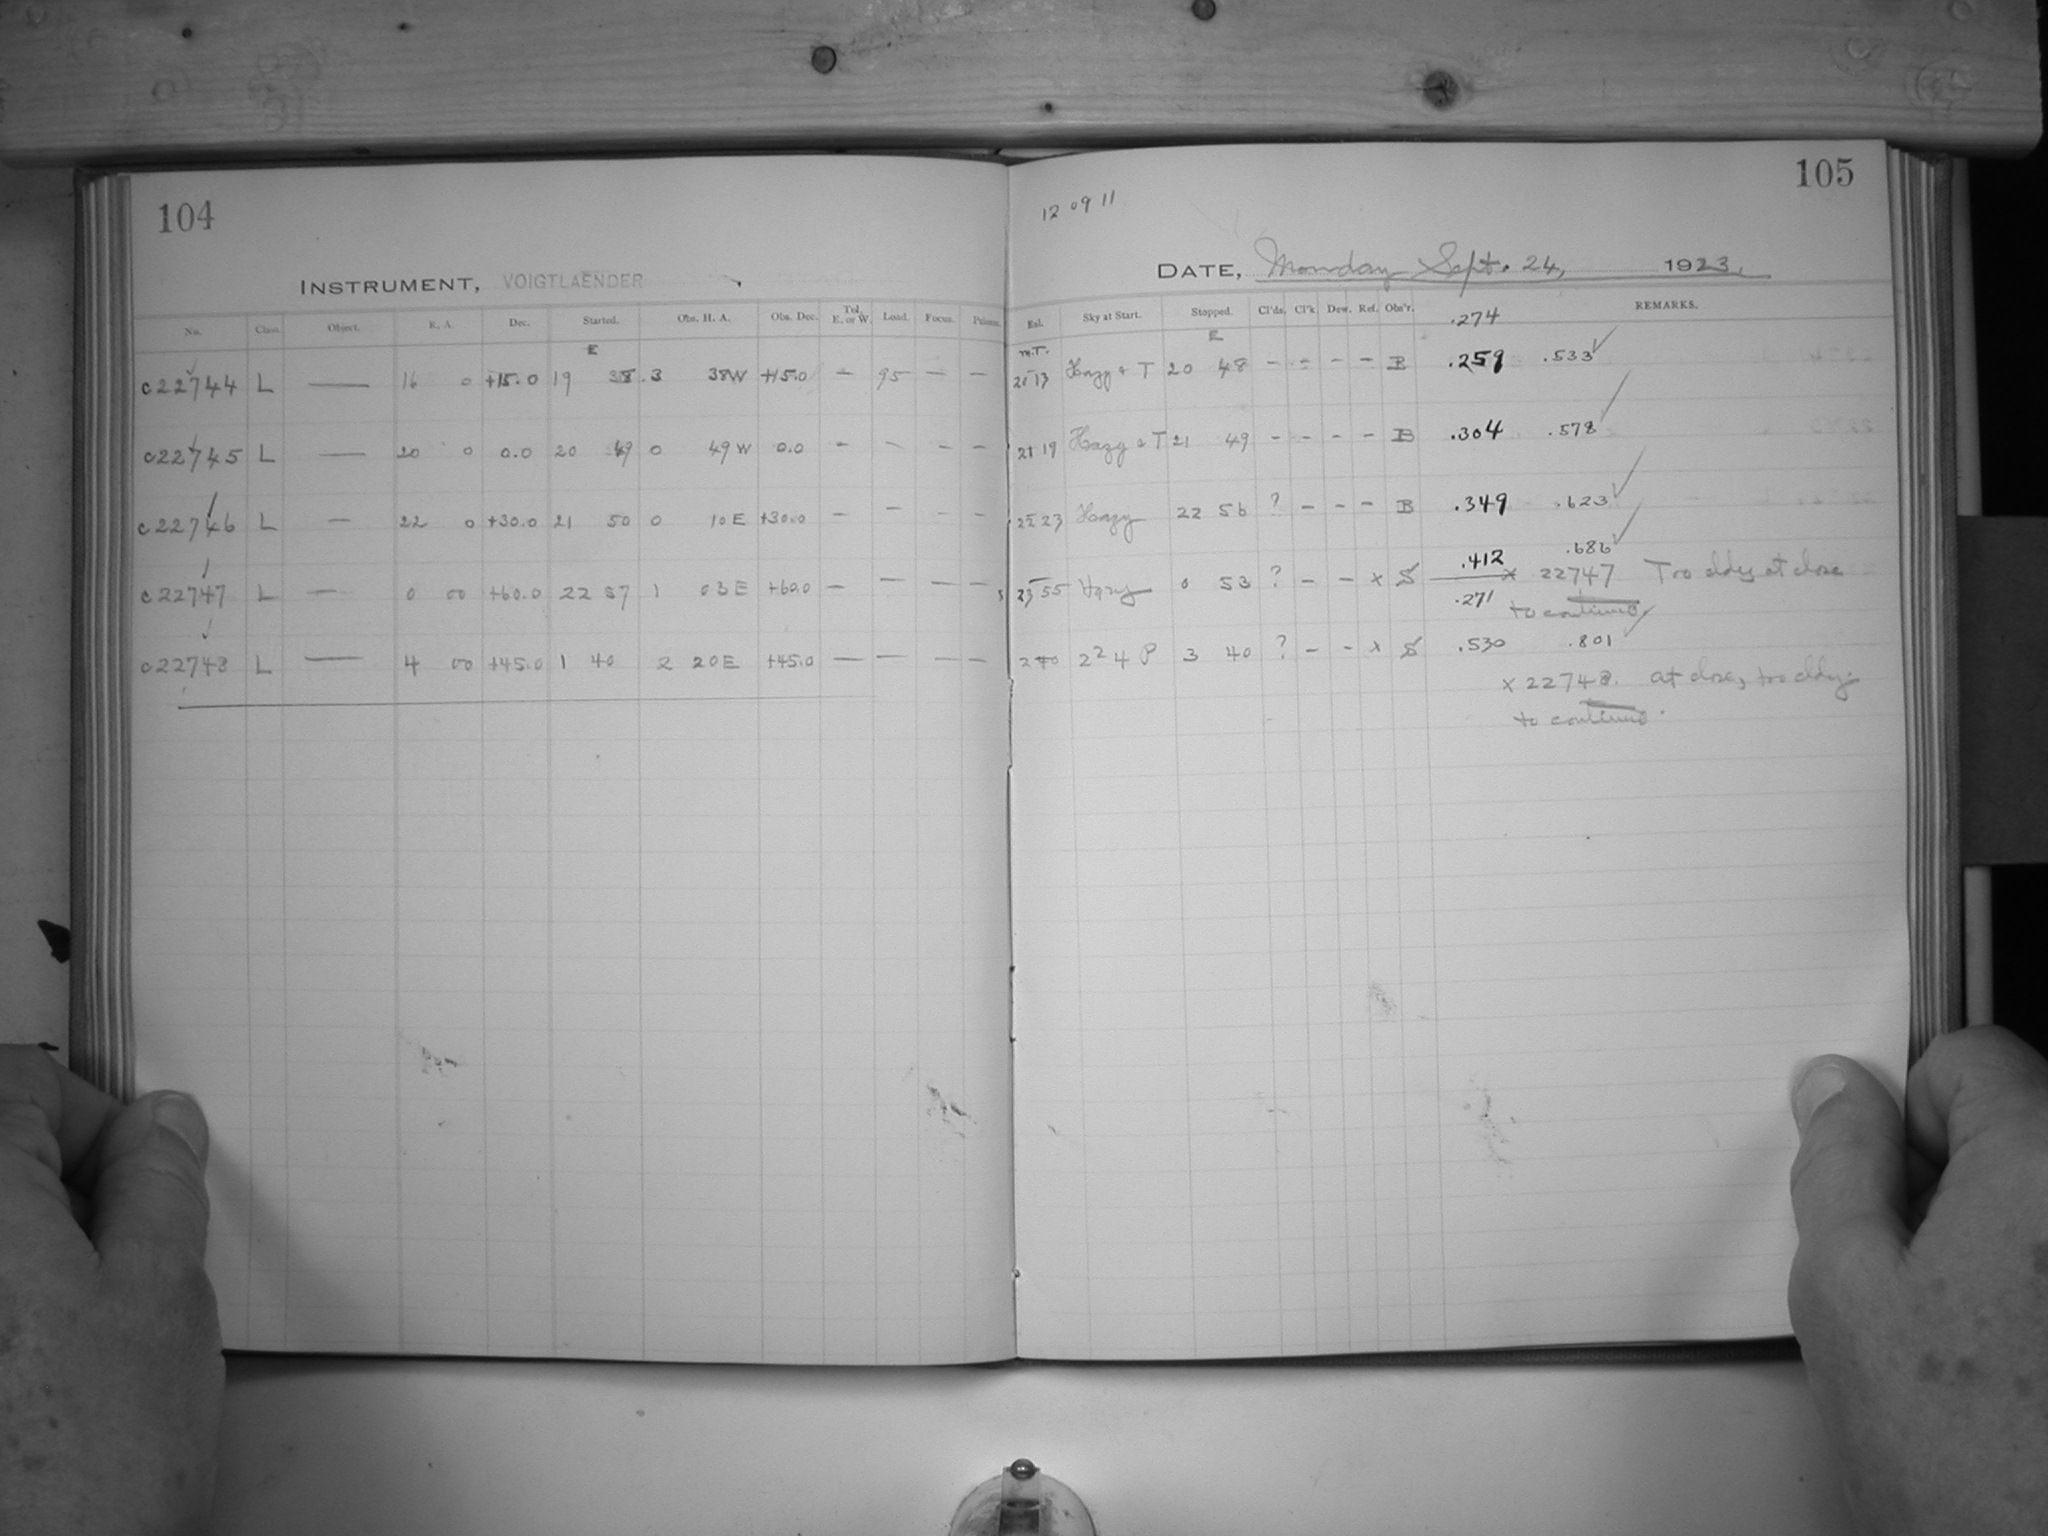 104
INSTRUMENT, VOIGTLAENDER
No. Class. Object. R. A. Dec. Started. Obs. H. A. Obs. Dec. Tel. E. or W. Load. Focus.
E
c22744 L — 16 0 +15.0 19 38 3 38W +15.0 — 95 — —
c22745 L — 20 0 0.0 20 49 0 49W 0.0 - - - -
c22746 L — 22 0 +30.0 21 50 0 10E +30.0 - - - -
c22747 L — 0 00 +60.0 22 57 1 03E +60.0 — — — —
c22748 L — 4 00 +45.0 1 40 2 20E +45.0 — — — —
105
12 09 11
DATE, Monday Sept. 24, 1923.
Sky at Start. Stopped. Cl'ds. Cl'k Dew. Ref. Obs'r. REMARKS.
.274
M.T. E
Hazy & T 20 48 - - - - B .259 .533 ✓
21 19 Hazy & T 21 49 - - - - B .304 .578 ✓
22 23 Hazy 22 56 ? - - - B .349 .623 ✓
.412 .686 ✓
23 55 Hazy 0 53 ? - - x S x 22747 Too cldy at close
.271 to continue.
2 40 2 2 4 P 3 40 ? - - x S .530 .801 ✓
x 22748. at close, too cldy.
to continue.